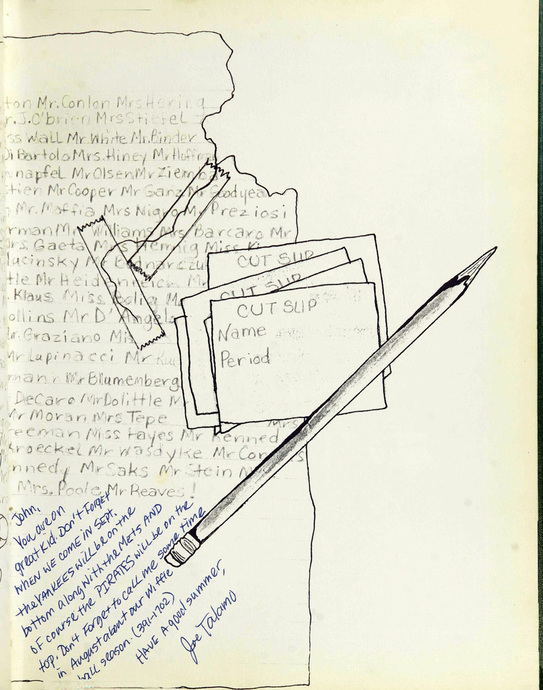 ton Mr. Conlon Mrs Hering
r. J. O'brien Mrs Stierel
ss Wall Mr White Mr. Binder
Di Bartolo Mrs. Hiney Mr Hoffm
napfel Mr Olsen Mr Ziemba
stier Mr Cooper Mr Ganz Mr Goodyea
Mr. Maffia Mrs Nigro Mr Preziosi
rman Mr Williams Mrs Barcaro Mr
rs. Gaeta Hennig Miss
lucinsky Mr Bednarczu
tle Mr Heidenreich Mr
. Klaus Miss
ollins Mr D'Angel
r. Graziano
Mr Lupinacci Mr
mann Mr Blumenberg
DeCaro Mr Dolittle M
Mr Moran Mrs Tepe Mrs
reeman Miss Hayes Mr Kenned
kroeckel Mr Wasdyke Mr Con s
nnedy Mr Saks Mr Stein
Mrs. Poole Mr Reaves!
CUT SLIP
CUT SLIP
CUT SLIP
Name
Period
John,
You are on
great kid. Don't Forget
WHEN WE COME IN SEPT.
the YANKEES will be on the
bottom along with the METS AND
OF course the PIRATES will be on the
top. Don't Forget to call me some time
in August about our wiffle
ball season. (391-1702)
HAVE A good summer,
Joe Talamo